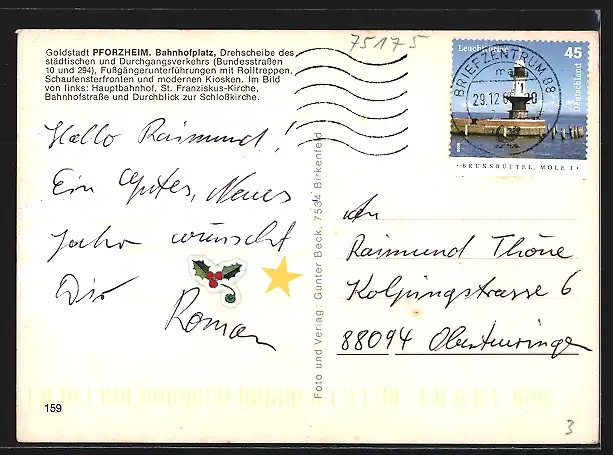 75175
Goldstadt PFORZHEIM. Bahnhofplatz, Drehscheibe des
städtischen und Durchgangsverkehrs (Bundesstraßen
10 und 294), Fußgängerunterführungen mit Rolltreppen,
Schaufensterfronten und modernen Kiosken. Im Bild
von links: Hauptbahnhof, St. Franziskus-Kirche,
Bahnhofstraße und Durchblick zur Schloßkirche.
Leuchttürme 45
Deutschland
BRIEFZENTRUM 88
29.12.
BRUNSBÜTTEL, MOLE 1
Hallo Raimund!
Ein Gutes, Neues
Jahr wünscht
Dir
Roman
Foto und Verlag: Günter Beck, 7534 Birkenfeld
An
Raimund Thöne
Kolpingstrasse 6
88094 Oberteuringen
159
3